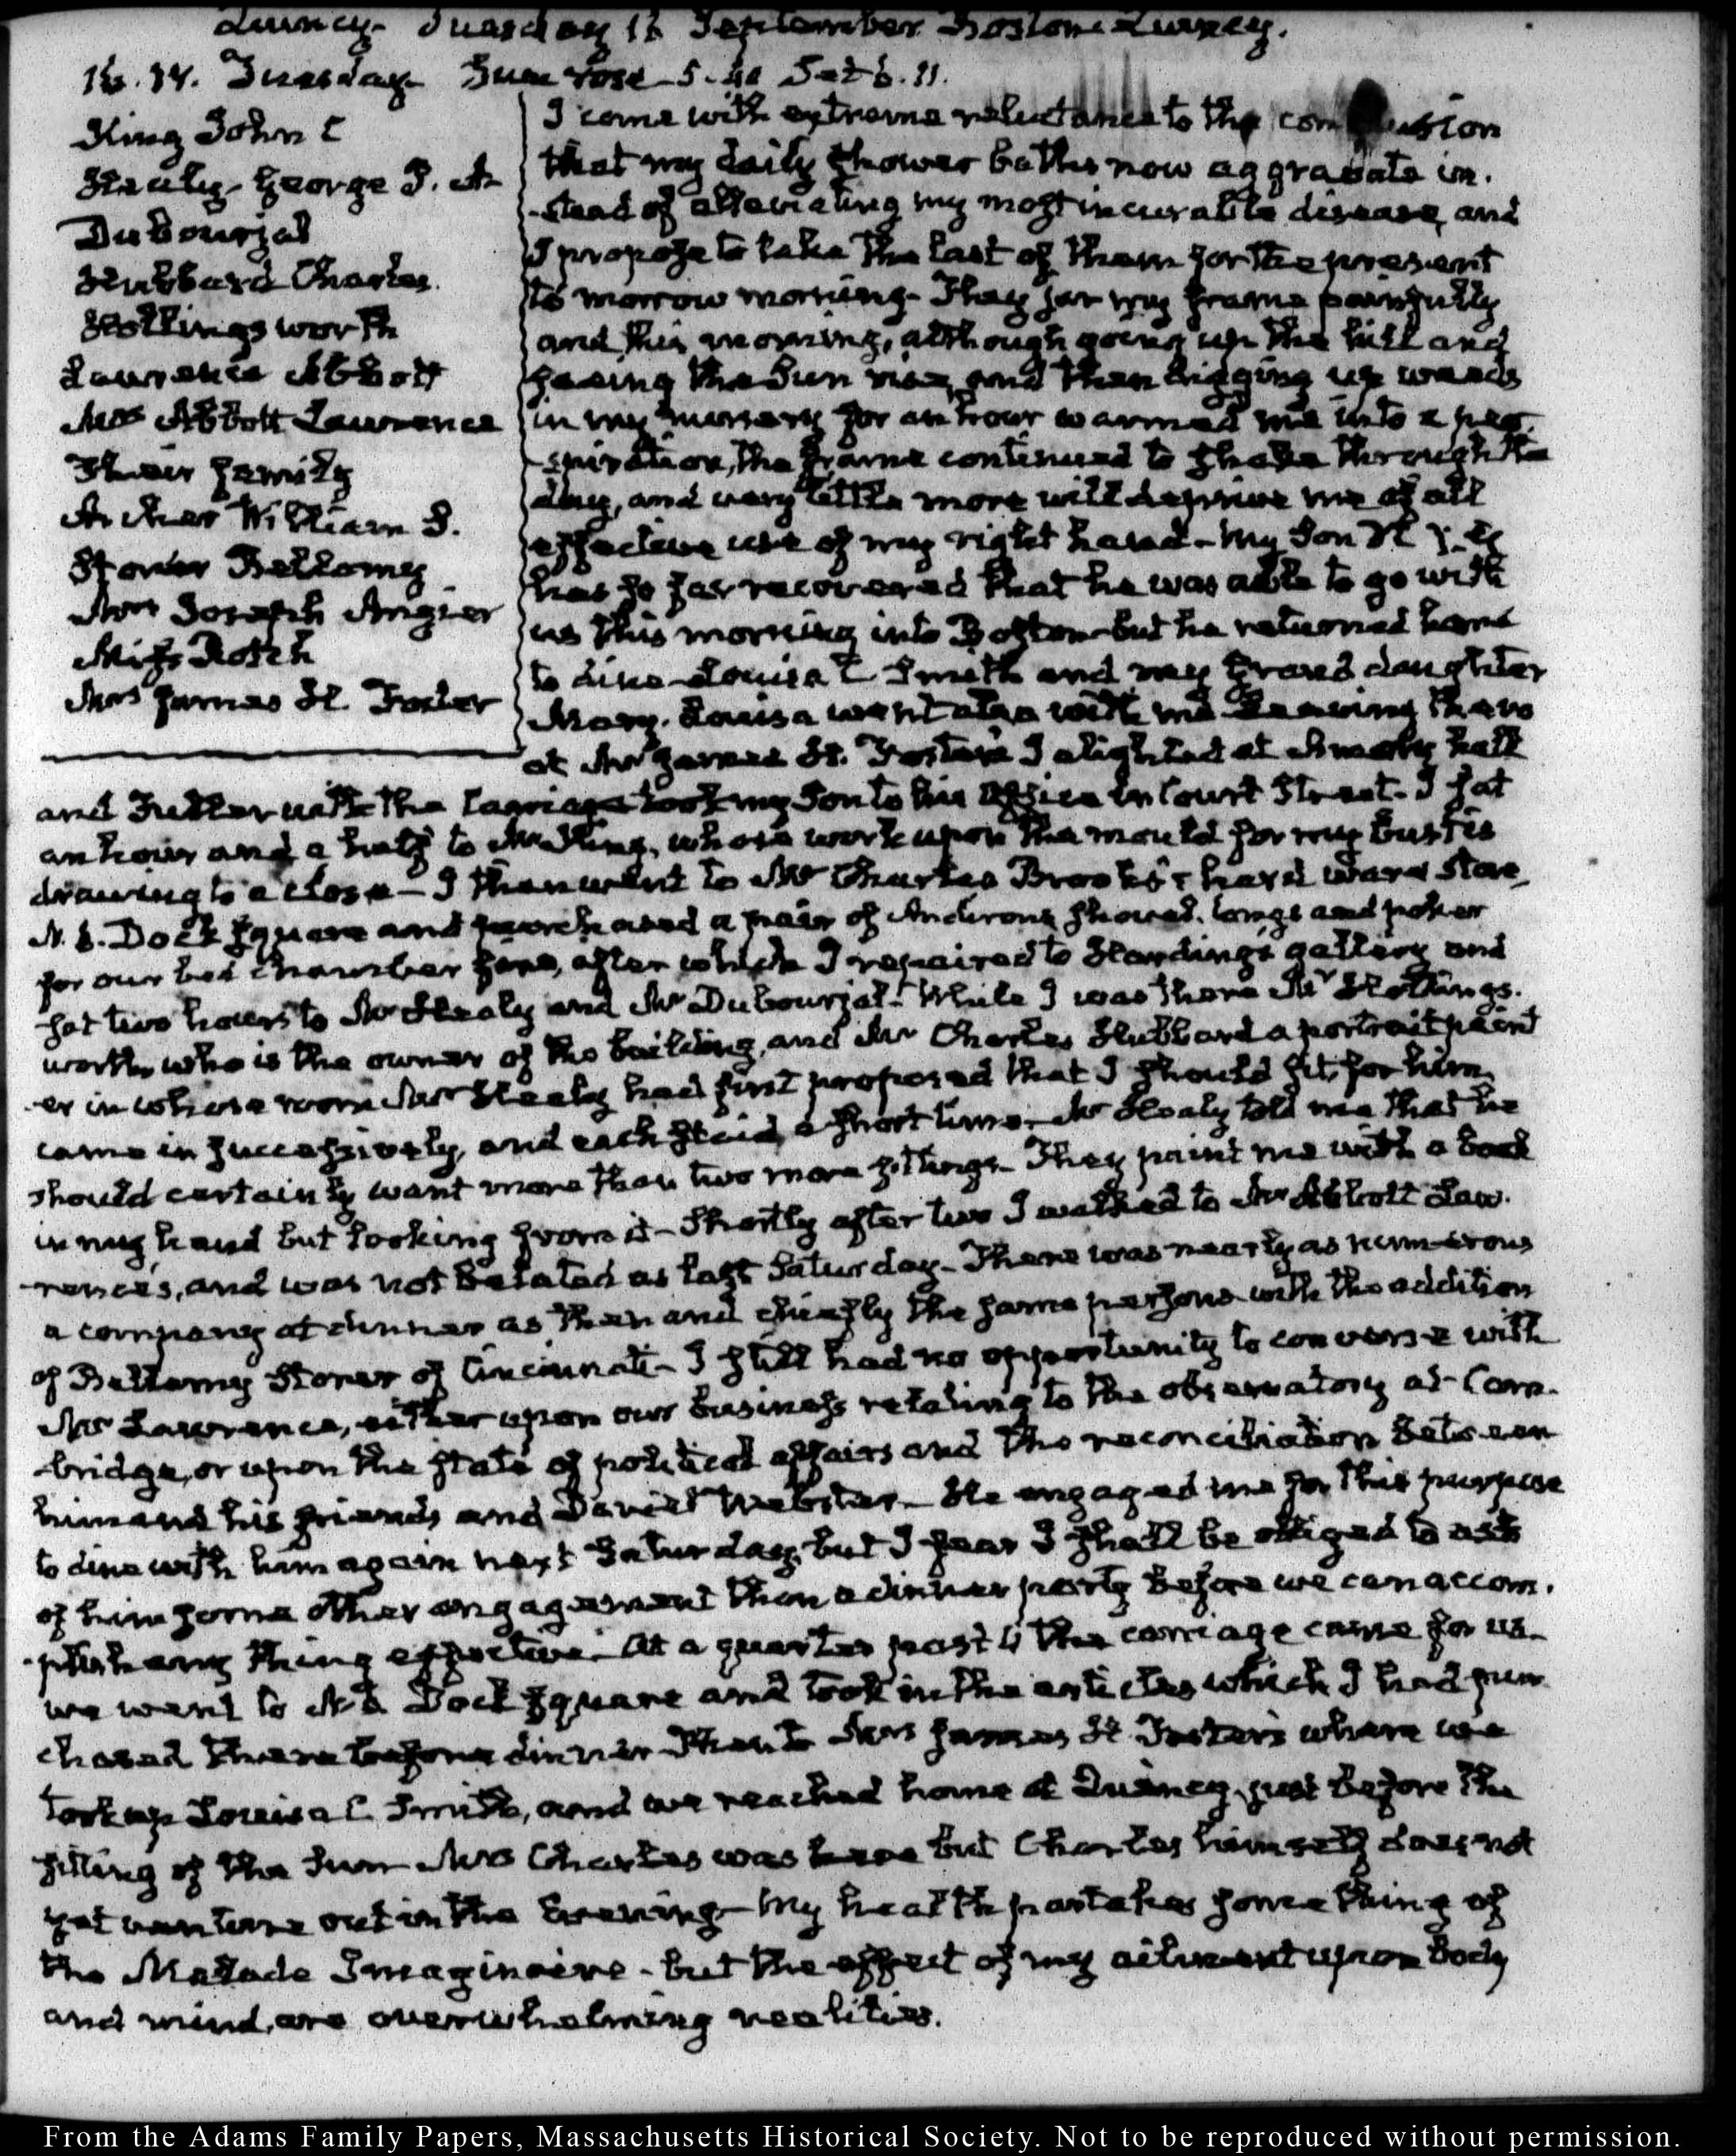 Quincy. Tuesday 16 September. Boston. Quincy.
16. IV. Tuesday. Sun rose 5.40 Set 6.11.
King John C
Healy. George P. A.
Dubourjal
Hubbard Charles.
Hollingsworth
Lawrence Abbott
Mrs Abbott Lawrence
Their family
Archer William S.
Storer Bellamy
Mrs Joseph Angier
Miss Rotch
Mrs James H. Foster
I come with extreme reluctance to the conclusion
that my daily shower baths now aggravate in-
-stead of alleviating my most incurable disease, and
I propose to take the last of them for the present
to morrow morning. They jar my frame painfully
and this morning, although going up the hill and
seeing the Sun rise, and then digging up weeds
in my nursery for an hour warmed me into a per-
-spiration, the frame continued to shake through the
day, and very little more will deprive me of all
effective use of my right hand. My Son
has so far recovered that he was able to go with
us this morning into Boston but he returned home
to dine. Louisa C. Smith and my grand daughter
Mary Louisa went also with me. Leaving them
at Mrs James H. Foster's I alighted at Amory hall
and with the carriage took my Son to his Office in Court Street. I sat
an hour and a half to Mr King, whose work upon the mould for my bust is
drawing to a close — I then went to Mr Charles Brooks's hard ware Store,
N. 6. Dock square and purchased a pair of Andirons shovel, tongs and poker
for our bed chamber here, after which I repaired to Harding's gallery and
sat two hours to Mr Healy and Mr Dubourjal. While I was there Mr Hollings-
worth, who is the owner of the building, and Mr Charles Hubbard a portrait paint
-er in whose room Mr Healy had first proposed that I should sit for him
came in successively, and each staid a short time. Mr Healy told me that he
should certainly want more than two more sittings. They paint me with a book
in my hand but looking from it. Shortly after two I walked to Mr Abbott Law-
-rence's, and was not belated as last Saturday. There was nearly as numerous
a company at dinner as then and chiefly the same persons with the addition
of Bellamy Storer of Cincinnati. I still had no opportunity to converse with
Mr Lawrence, either upon our business relating to the observatory at Cam-
-bridge, or upon the state of political affairs and the reconciliation between
him and his friends and Daniel Webster. He engaged me for this purpose
to dine with him again next Saturday, but I fear I shall be obliged to ask
of him some other engagement than a dinner party before we can accom-
-plish any thing effective. At a quarter past 4 the carriage came for us.
we went to N. 6. Dock square and took in the articles which I had pur
chased there before dinner. Then to Mrs James H. Foster's where we
took up Louisa C. Smith, and we reached home at Quincy just before the
setting of the Sun. Mrs Charles was here but Charles himself does not
yet venture out in the Evening. My health partakes something of
the Malade Imaginaire. but the effect of my ailment upon body
and mind, are overwhelming realities.
From the Adams Family Papers, Massachusetts Historical Society. Not to be reproduced without permission.